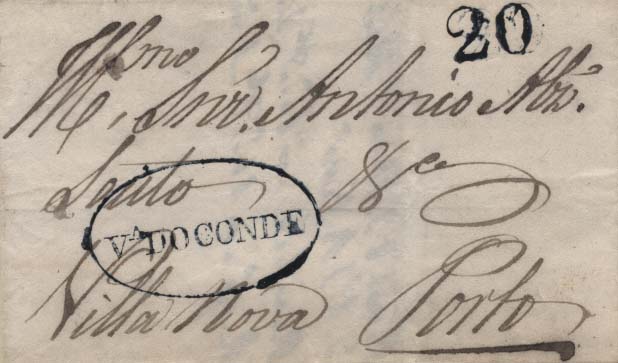 20
Illmo
Snr. Antonio Alz.
Souto &ca
Vᴬ DO CONDE
Villa Nova Porto